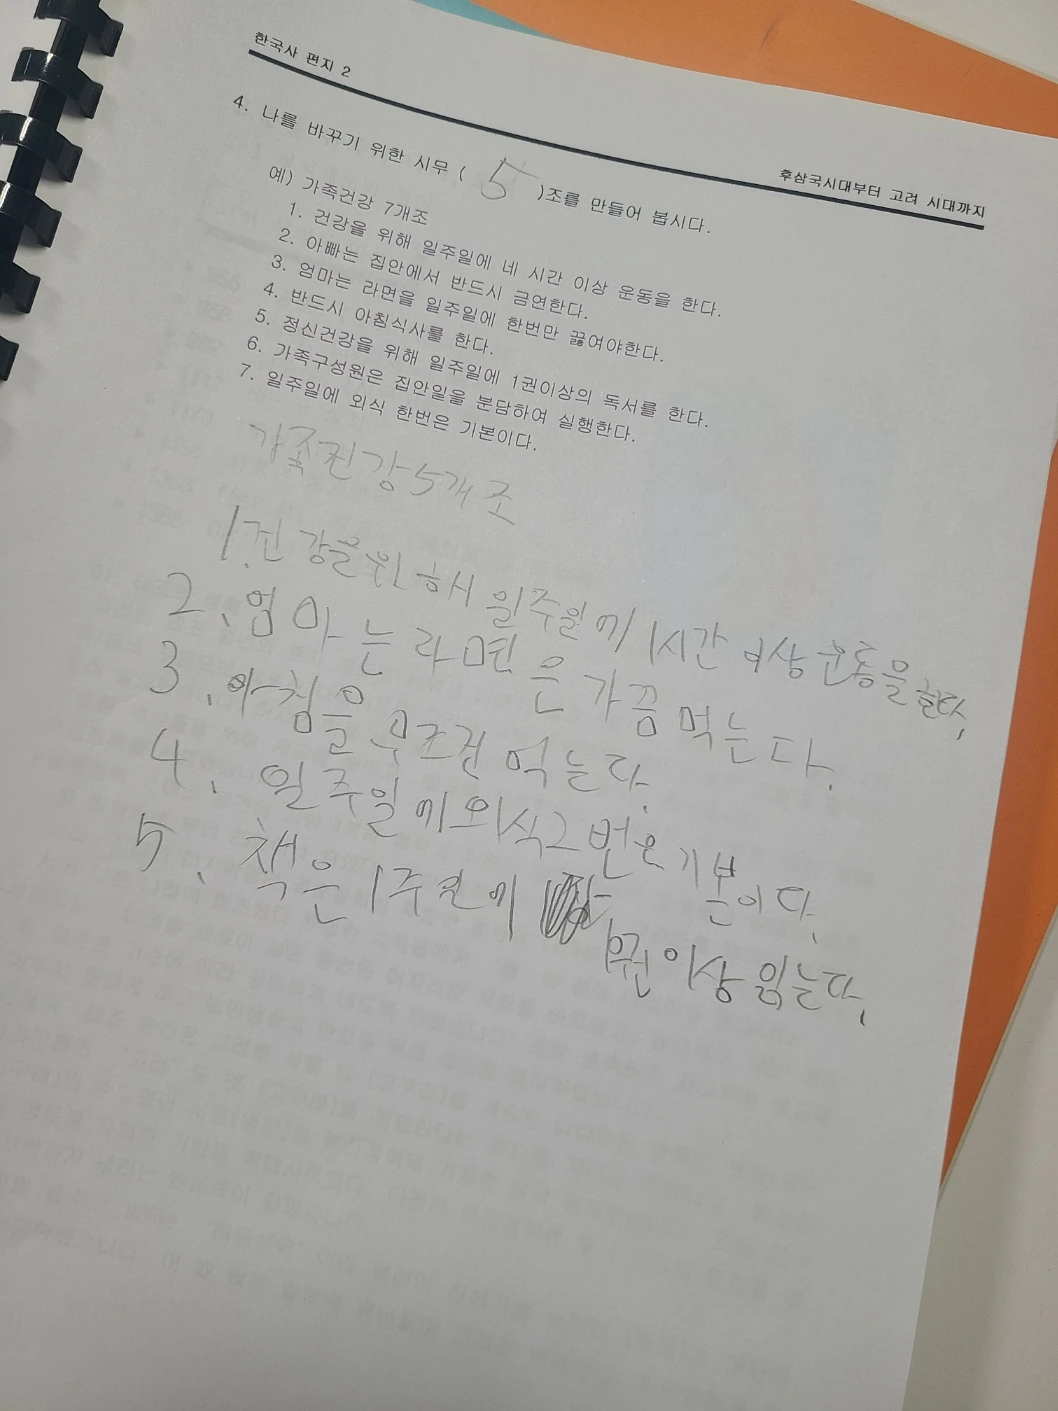 한국사 편지 2
후삼국시대부터 고려 시대까지
4. 나를 바꾸기 위한 시무 ( 5 )조를 만들어 봅시다.
예) 가족건강 7개조
1. 건강을 위해 일주일에 네 시간 이상 운동을 한다.
2. 아빠는 집안에서 반드시 금연한다.
3. 엄마는 라면을 일주일에 한번만 끓여야한다.
4. 반드시 아침식사를 한다.
5. 정신건강을 위해 일주일에 1권이상의 독서를 한다.
6. 가족구성원은 집안일을 분담하여 실행한다.
7. 일주일에 외식 한번은 기본이다.
가족건강5개조
1. 건강을위해 일주일에 1시간 이상 운동을 한다.
2. 엄마는 라면은 가끔 먹는다.
3. 아침을 무조건 먹는다.
4. 일주일에 외식 2번은 기본이다.
5. 책은 1주일에 1권 이상 읽는다.